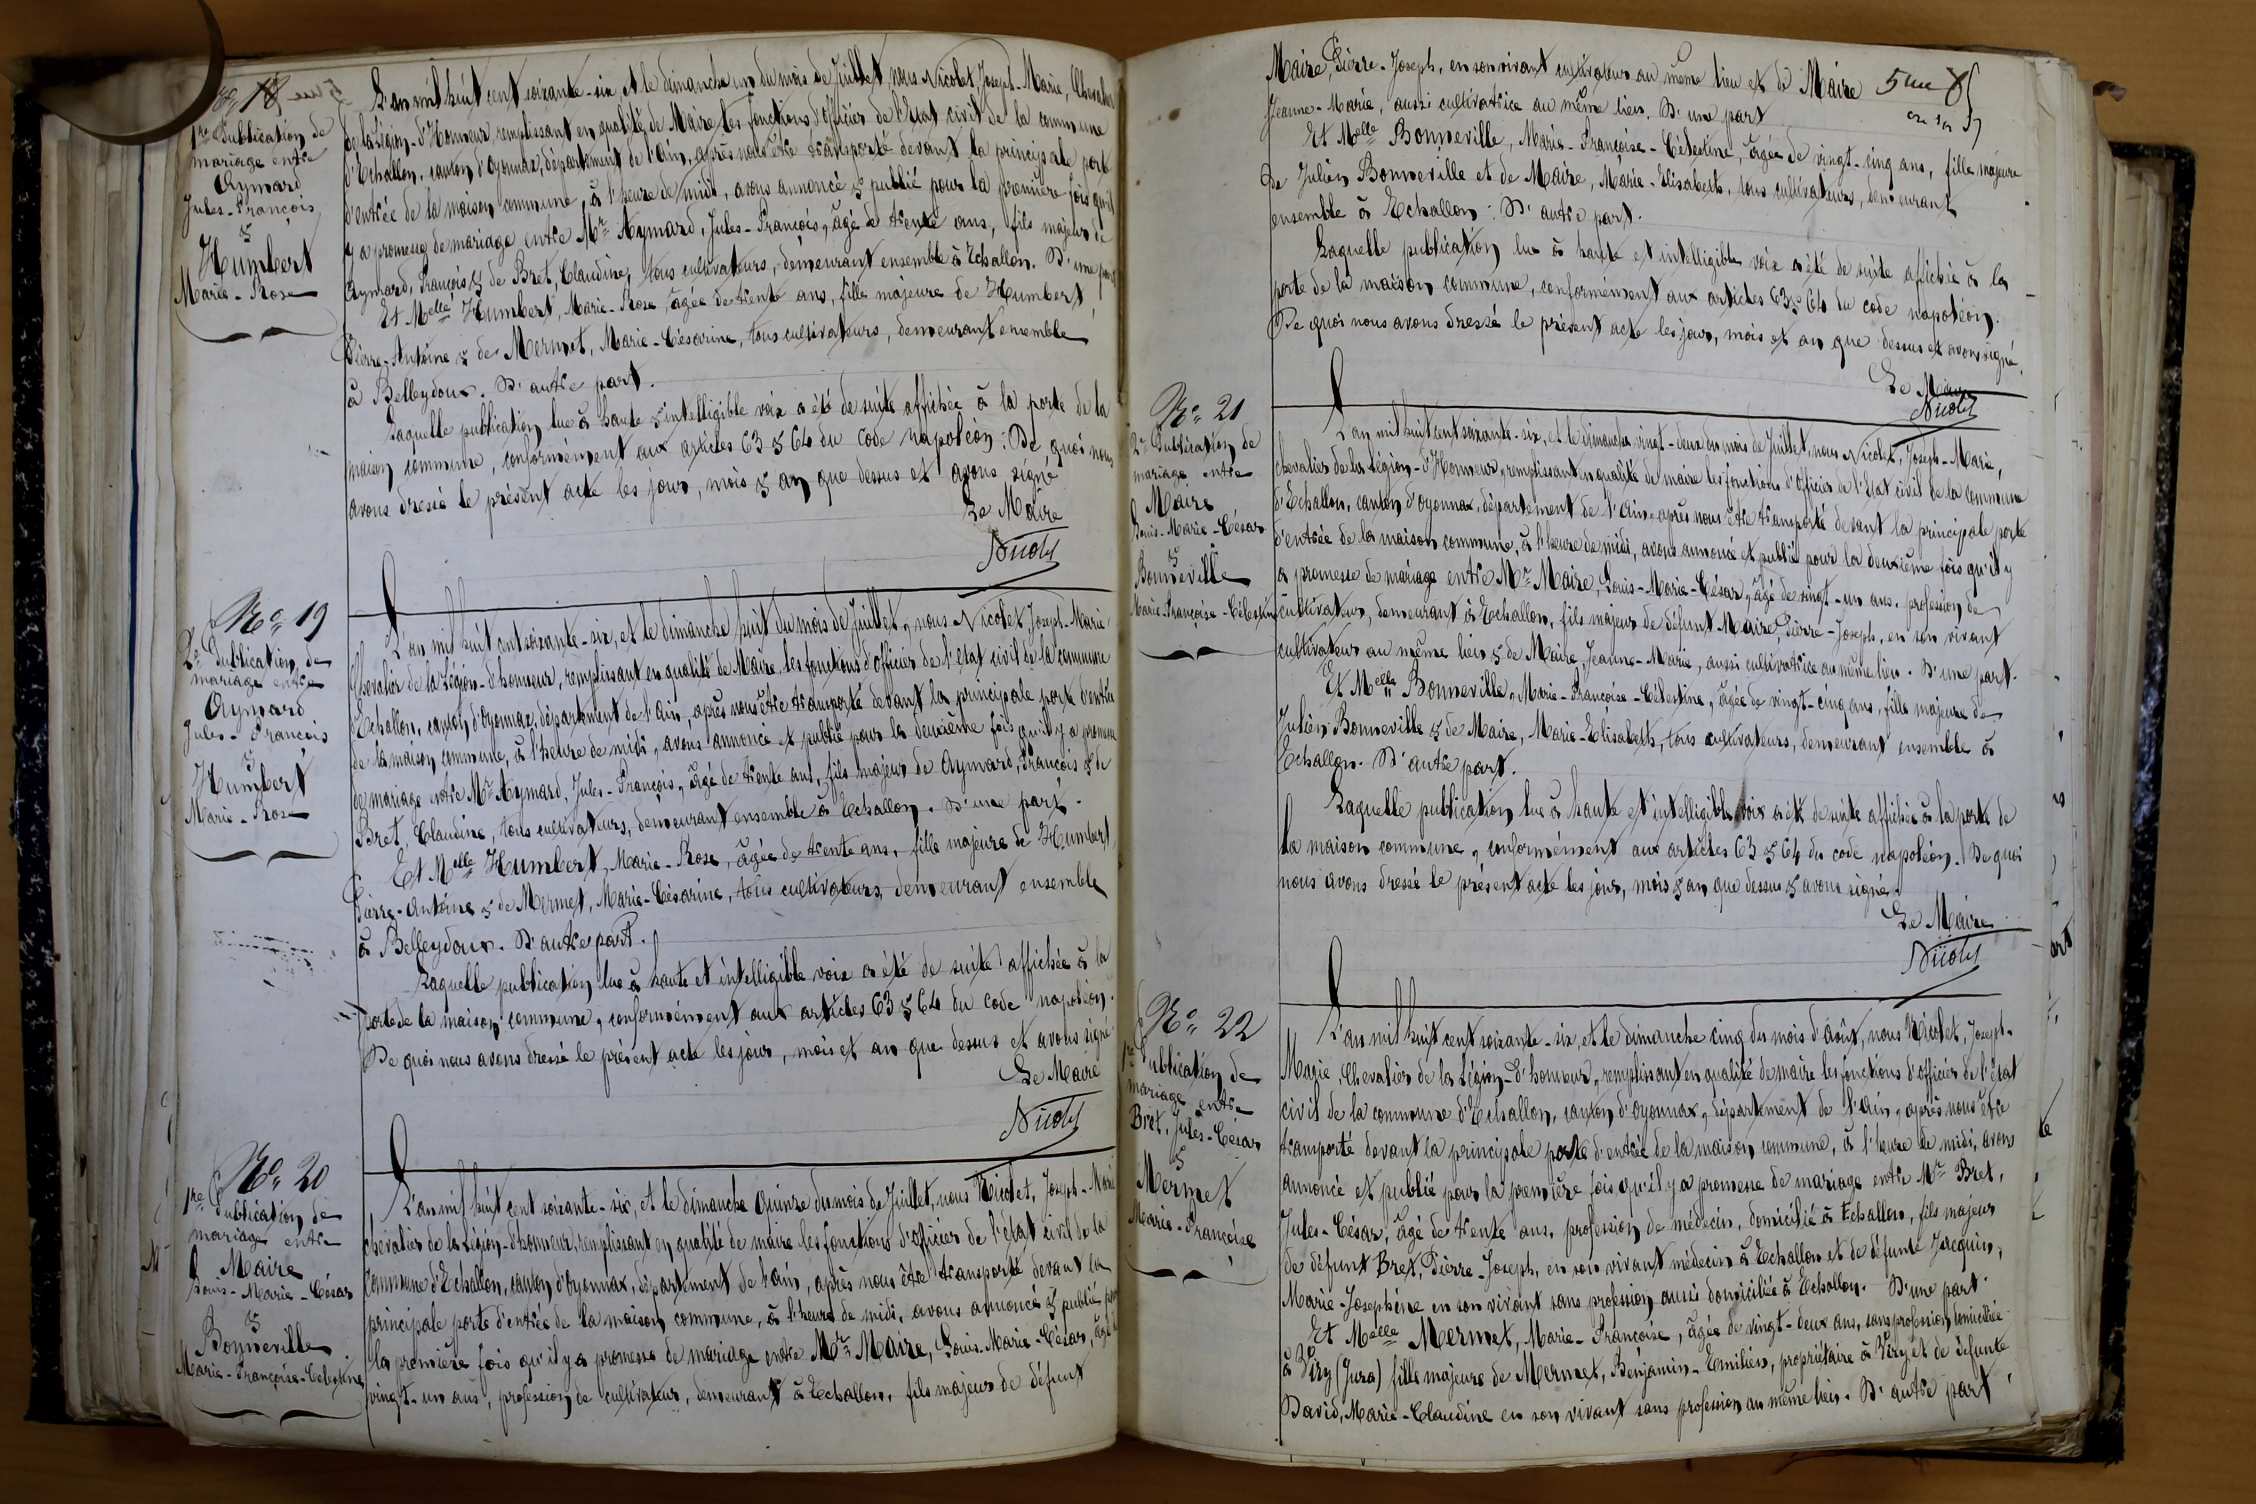 No 18
1re Publication de
mariage entre
Aymard
Jules-François
&
Humbert
Marie-Rose
L'an mil huit cent soixante-six, et le dimanche un du mois de Juillet, nous Nicolet, Joseph-Marie, Chevalier
de la Légion-d'Honneur, remplissant en qualité de Maire les fonctions d'officier de l'Etat civil de la commune
d'Echallon, canton d'Oyonnax, département de l'Ain, après nous être transporté devant la principale porte
d'entrée de la maison commune, à l'heure de midi, avons annoncé & publié pour la première fois qu'il
y a promesse de mariage entre Mr Aymard, Jules-François, âgé de trente ans, fils majeur de
Aymard, François & de Bret, Claudine, tous cultivateurs, demeurant ensemble à Echallon. D'une part
Et Melle Humbert, Marie-Rose, âgée de trente ans, fille majeure de Humbert
Pierre-Antoine & de Mermet, Marie-Césarine, tous cultivateurs, demeurant ensemble
à Belleydoux. D'autre part.
Laquelle publication lue à haute & intelligible voix a été de suite affichée à la porte de la
maison commune, conformément aux articles 63 & 64 du code napoléon: De quoi nous
avons dressé le présent acte les jour, mois & an que dessus et avons signé
Le Maire
Nicolet
No 19
2e Publication de
mariage entre
Aymard
Jules-François
&
Humbert
Marie-Rose
L'an mil huit cent soixante-six, et le dimanche huit du mois de Juillet, nous Nicolet, Joseph-Marie
Chevalier de la Légion-d'honneur, remplissant en qualité de Maire les fonctions d'officier de l'Etat civil de la commune
d'Echallon, canton d'Oyonnax, département de l'Ain, après nous être transporté devant la principale porte d'entrée
de la maison commune, à l'heure de midi, avons annoncé et publié pour la deuxième fois qu'il y a promesse
de mariage entre Mr Aymard, Jules-François, âgé de trente ans, fils majeur de Aymard, François & de
Bret, Claudine, tous cultivateurs, demeurant ensemble à Echallon. D'une part.
Et Melle Humbert, Marie-Rose, âgée de trente ans, fille majeure de Humbert
Pierre-Antoine & de Mermet, Marie-Césarine, tous cultivateurs, demeurant ensemble
à Belleydoux. D'autre part.
Laquelle publication lue à haute et intelligible voix a été de suite affichée à la
porte de la maison commune, conformément aux articles 63 & 64 du code napoléon.
De quoi nous avons dressé le présent acte les jour, mois et an que dessus et avons signé
Le Maire
Nicolet
No 20
1re Publication de
mariage entre
Maire
Louis-Marie-César
&
Bonneville
Marie-Françoise-Célestine
L'an mil huit cent soixante-six, et le dimanche Quinze du mois de Juillet, nous Nicolet, Joseph-Marie
chevalier de la Légion-d'honneur, remplissant en qualité de maire les fonctions d'officier de l'état civil de la
commune d'Echallon, canton d'Oyonnax, département de l'ain, après nous être transporté devant la
principale porte d'entrée de la maison commune, à l'heure de midi, avons annoncé & publié pour
la première fois qu'il y a promesse de mariage entre Mr Maire, Louis-Marie-César, âgé de
vingt-un ans, profession de cultivateur, demeurant à Echallon, fils majeur de défunt
Maire, Pierre-Joseph, en son vivant cultivateur au même lieu et de Maire
Jeanne-Marie, aussi cultivatrice au même lieu. D'une part
Et Melle Bonneville, Marie-Françoise-Célestine, âgée de vingt-cinq ans, fille majeure
De Julien Bonneville et de Maire, Marie-Elisabeth, tous cultivateurs, demeurant
ensemble à Echallon: D'autre part.
Laquelle publication lue à haute et intelligible voix a été de suite affichée à la
porte de la maison commune, conformément aux articles 63 & 64 du code napoléon.
De quoi nous avons dressé le présent acte les jour, mois et an que dessus et avons signé
Le Maire
Nicolet
No 21
2e Publication de
mariage entre
Maire
Louis-Marie-César
&
Bonneville
Marie-Françoise-Célestine
L'an mil huit cent soixante-six, et le dimanche vingt-deux du mois de Juillet, nous Nicolet, Joseph-Marie,
chevalier de la Légion-d'Honneur, remplissant en qualité de maire les fonctions d'officier de l'Etat civil de la commune
d'Echallon, canton d'Oyonnax, département de l'Ain, après nous être transporté devant la principale porte
d'entrée de la maison commune, à l'heure de midi, avons annoncé et publié pour la deuxième fois qu'il y
a promesse de mariage entre Mr Maire, Louis-Marie-César, âgé de vingt-un ans, profession de
cultivateur, demeurant à Echallon, fils majeur de défunt Maire, Pierre-Joseph, en son vivant
cultivateur au même lieu & de Maire, Jeanne-Marie, aussi cultivatrice au même lieu. D'une part.
Et Melle Bonneville, Marie-Françoise-Célestine, âgée de vingt-cinq ans, fille majeure de
Julien Bonneville & de Maire, Marie-Elisabeth, tous cultivateurs, demeurant ensemble à
Echallon. D'autre part.
Laquelle publication lue à haute et intelligible voix a été de suite affichée à la porte de
la maison commune, conformément aux articles 63 & 64 du code napoléon. De quoi
nous avons dressé le présent acte les jour, mois & an que dessus & avons signé.
Le Maire
Nicolet
No 22
1re Publication de
mariage entre
Bret, Jules-César
&
Mermet
Marie-Françoise
L'an mil huit cent soixante-six, et le dimanche cinq du mois d'août, nous Nicolet, Joseph-
Marie, Chevalier de la Légion-d'honneur, remplissant en qualité de maire les fonctions d'officier de l'état
civil de la commune d'Echallon, canton d'Oyonnax, département de l'Ain, après nous être
transporté devant la principale porte d'entrée de la maison commune, à l'heure de midi, avons
annoncé et publié pour la première fois qu'il y a promesse de mariage entre Mr Bret,
Jules-César, âgé de trente ans, profession de médecin, domicilié à Echallon, fils majeur
de défunt Bret, Pierre-Joseph, en son vivant médecin à Echallon et de défunte Jacquin,
Marie-Josephine en son vivant sans profession aussi domiciliée à Echallon. D'une part
Et Melle Mermet, Marie-Françoise, âgée de vingt-deux ans, sans profession domiciliée
à Viry (Jura) fille majeure de Mermet, Benjamin-Emilien, propriétaire à Viry et de défunte
David, Marie-Claudine en son vivant sans profession au même lieu. D'autre part